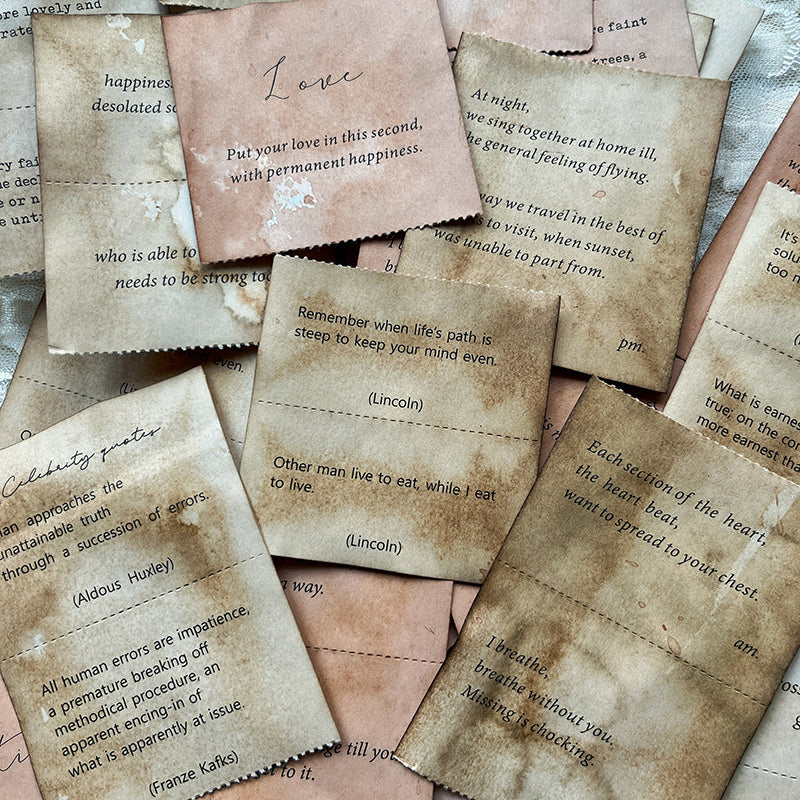 ore lovely and
happiness.
desolated
who is able to
needs to be strong too
Love
Put your love in this second,
with permanent happiness.
e faint
trees, a
At night,
we sing together at home ill,
he general feeling of flying.
way we travel in the best of
s to visit, when sunset,
was unable to part from.
pm.
ry fai
ue decl
e or n
e unti
Remember when life's path is
steep to keep your mind even.
(Lincoln)
Other man live to eat, while I eat
to live.
(Lincoln)
even.
It's
solu
too m
What is earnes
true; on the co
more earnest tha
Celebrity quotes
an approaches the
unattainable truth
through a succession of errors.
(Aldous Huxley)
All human errors are impatience,
a premature breaking off
methodical procedure, an
apparent encing-in of
what is apparently at issue.
(Franze Kafks)
a way.
ge till you
t to it.
Each section of the heart,
the heart beat,
want to spread to your chest.
am.
I breathe,
breathe without you.
Missing is chocking.